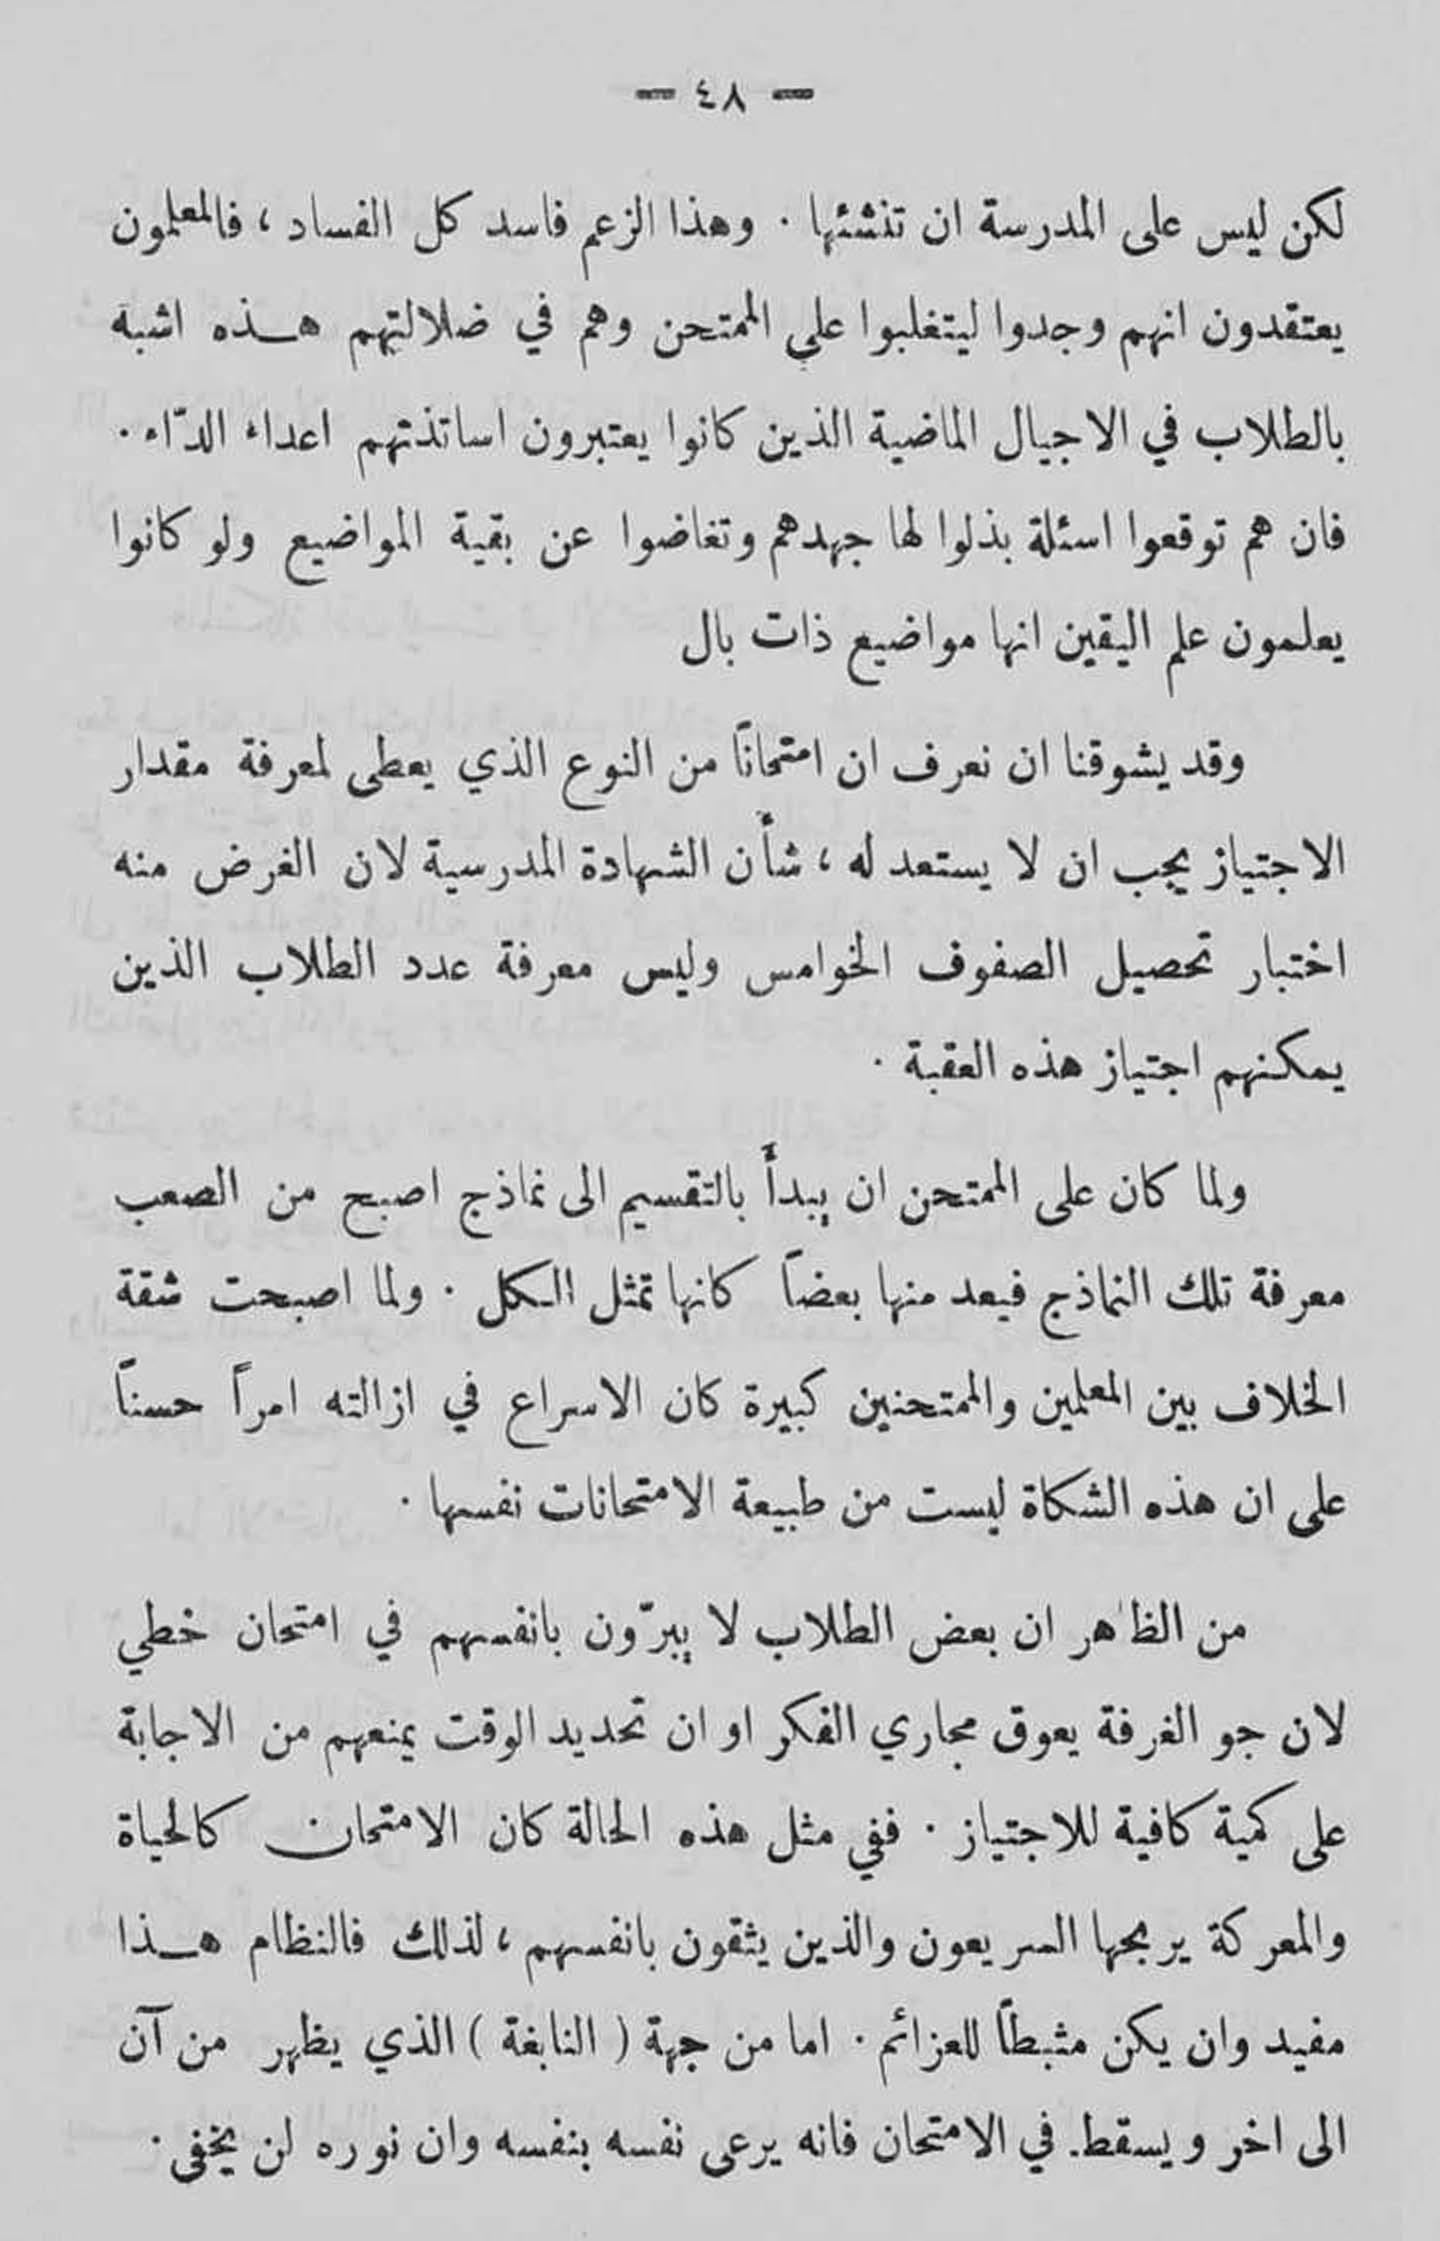 — ٤٨ —
لكن ليس على المدرسة ان تنشئها . وهذا الزعم فاسد كل الفساد ، فالمعلمون
يعتقدون انهم وجدوا ليتغلبوا على الممتحن وهم في ضلالتهم هذه اشبه
بالطلاب في الاجيال الماضية الذين كانوا يعتبرون اساتذتهم اعداء الدّاء .
فان هم توقعوا اسئلة بذلوا لها جهدهم وتغاضوا عن بقية المواضيع ولو كانوا
يعلمون علم اليقين انها مواضيع ذات بال
وقد يشوقنا ان نعرف ان امتحانًا من النوع الذي يعطى لمعرفة مقدار
الاجتياز يجب ان لا يستعد له ، شأن الشهادة المدرسية لان الغرض منه
اختبار تحصيل الصفوف الخوامس وليس معرفة عدد الطلاب الذين
يمكنهم اجتياز هذه العقبة .
ولما كان على الممتحن ان يبدأ بالتقسيم الى نماذج اصبح من الصعب
معرفة تلك النماذج فيعد منها بعضاً كانها تمثل الكل . ولما اصبحت شقة
الخلاف بين المعلمين والممتحنين كبيرة كان الاسراع في ازالته امراً حسناً
على ان هذه الشكاة ليست من طبيعة الامتحانات نفسها .
من الظاهر ان بعض الطلاب لا يبرّون بانفسهم في امتحان خطي
لان جو الغرفة يعوق مجاري الفكر او ان تحديد الوقت يمنعهم من الاجابة
على كمية كافية للاجتياز . ففي مثل هذه الحالة كان الامتحان كالحياة
والمعركة يربحها السريعون والذين يثقون بانفسهم ، لذلك فالنظام هذا
مفيد وان يكن مثبطاً للعزائم . اما من جهة ( النابغة ) الذي يظهر من آن
الى اخر ويسقط. في الامتحان فانه يرعى نفسه بنفسه وان نوره لن يخفى .